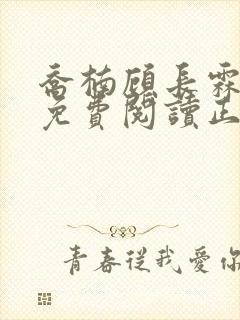 喬楠顧長霖
免費閱讀正
青春從我愛你